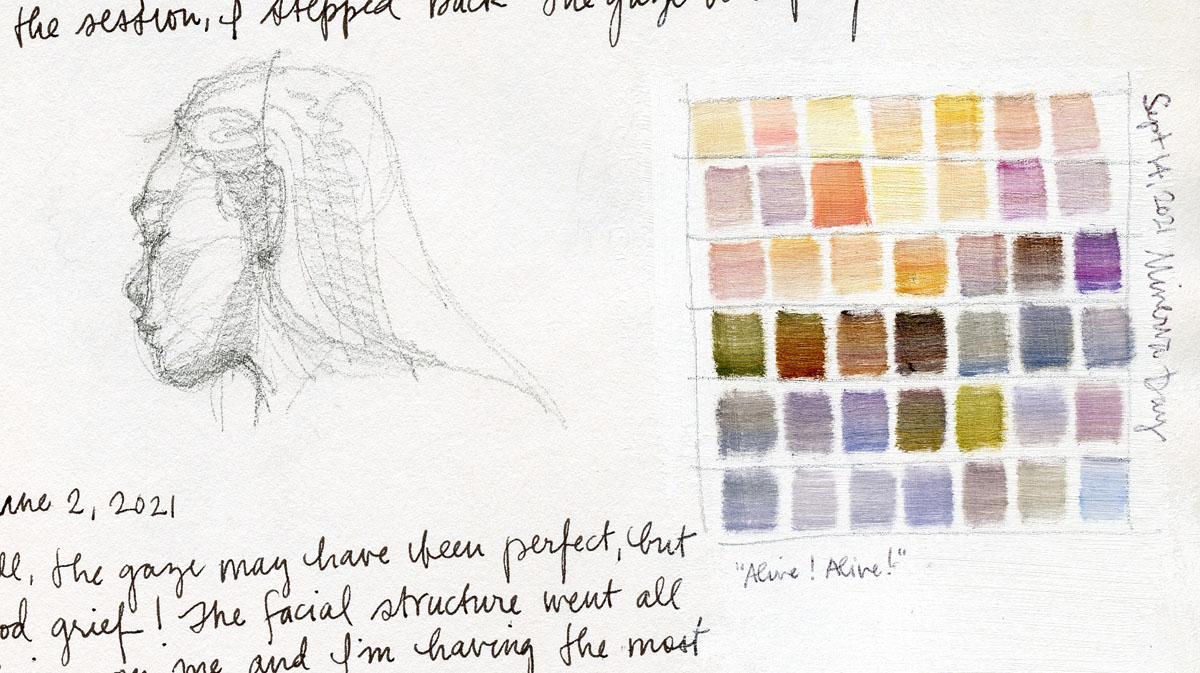 the session, I stepped back The gaze
June 2, 2021
ll, the gaze may have been perfect, but
od grief! The facial structure went all
me and I'm having the most
Sept 14, 2021 Minerva Day
"Alive! Alive!"